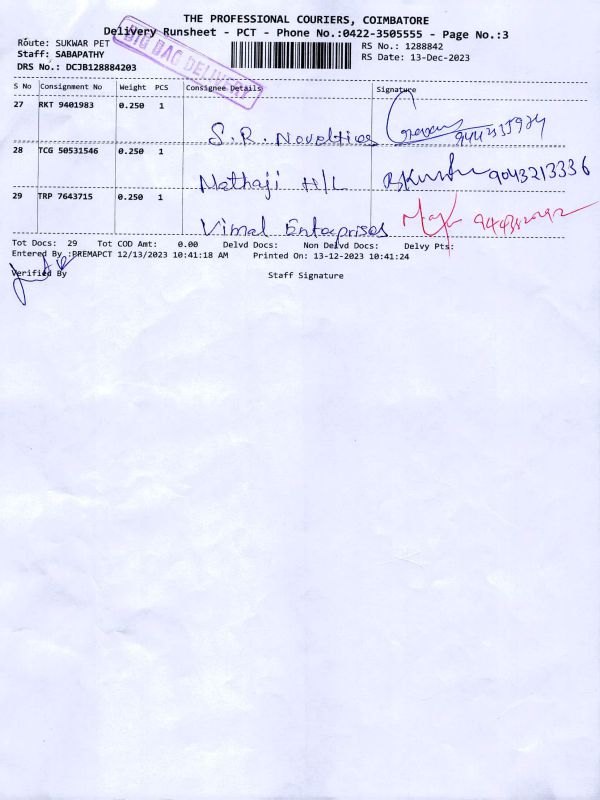 THE PROFESSIONAL COURIERS, COIMBATORE
Delivery Runsheet - PCT - Phone No.:0422-3505555 - Page No.:3
BIG BAG DELIVERY
Route: SUKWAR PET
RS No.: 1288842
Staff: SABAPATHY
RS Date: 13-Dec-2023
DRS No.: DCJB128884203
S No Consignment No Weight PCS Consignee Details Signature
27 RKT 9401983 0.250 1
S.R. Novelties
28 TCG 50531546 0.250 1
Nathaji H/L 9043213336
29 TRP 7643715 0.250 1
Vimal Enterprises
Tot Docs: 29 Tot COD Amt: 0.00 Delvd Docs: Non Delvd Docs: Delvy Pts:
Entered By :PREMAPCT 12/13/2023 10:41:18 AM Printed On: 13-12-2023 10:41:24
Verified By Staff Signature